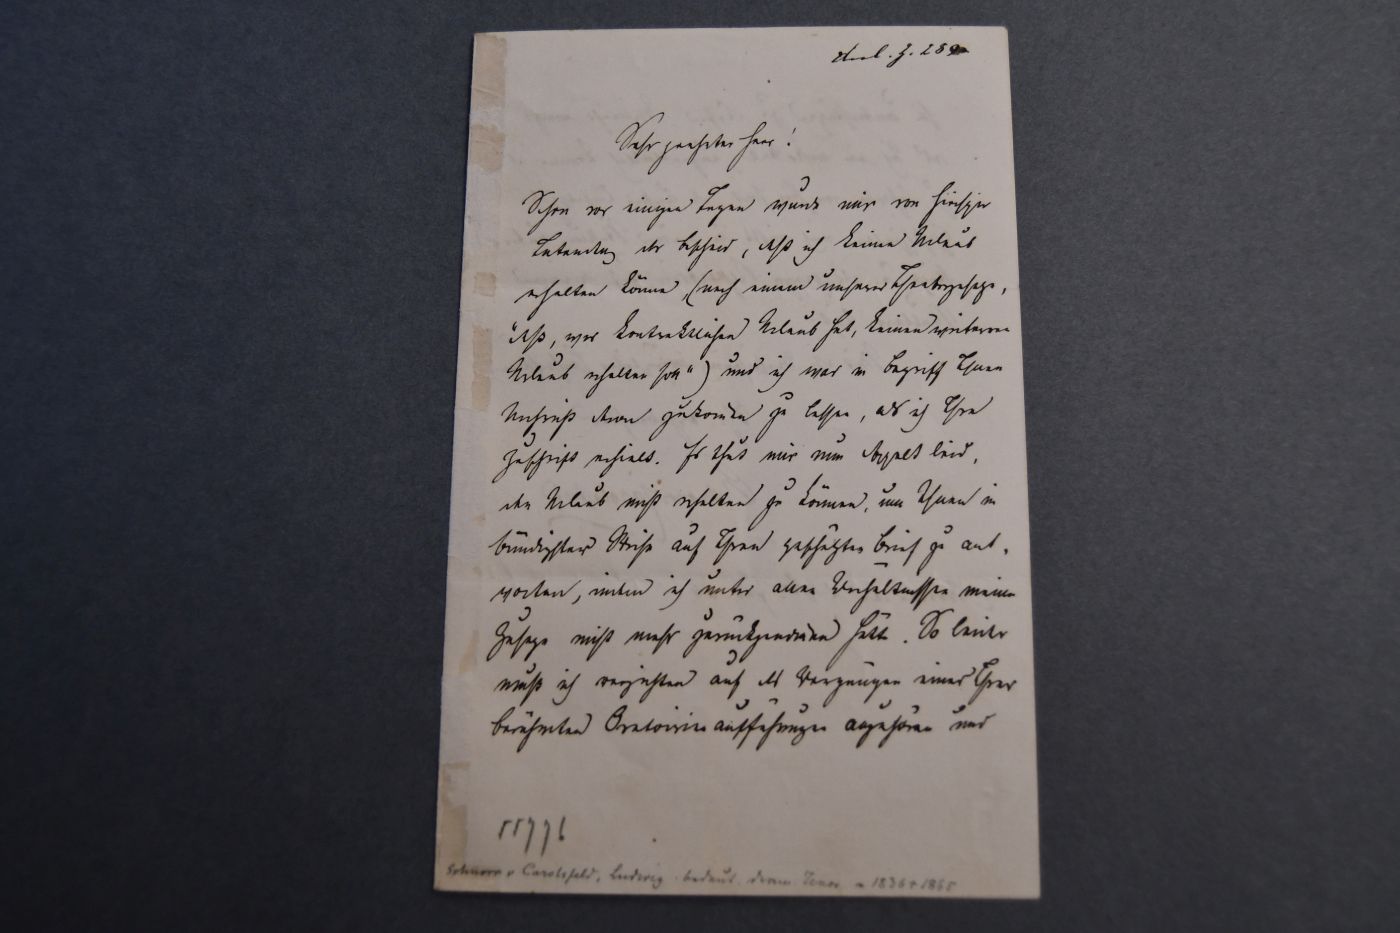 Sehr geehrter Herr!
Schon vor einigen Tagen wurde mir von hiesiger
Intendanz der Bescheid, daß ich keinen Urlaub
erhalten könne, (nach einem unserer Theatergesetze,
"daß, wer kontraktlichen Urlaub hat, keinen weiteren
Urlaub erhalten soll") und ich war im Begriff Ihnen
Nachricht davon zukommen zu lassen, als ich Ihre
Zuschrift erhielt. Es thut mir nun doppelt leid,
den Urlaub nicht erhalten zu können, um Ihnen in
bündigster Weise auf Ihren geschätzten Brief zu ant-
worten, indem ich unter allen Verhältnissen meine
Zusage nicht mehr zurückgenommen hätte. So leider
muß ich verzichten auf das Vergnügen eines Ihrer
berühmten Oratorienaufführungen anzuhören und
55776
Schnorr v Carolsfeld, Ludwig. bedeut. dram. Tenor 1836 + 1865